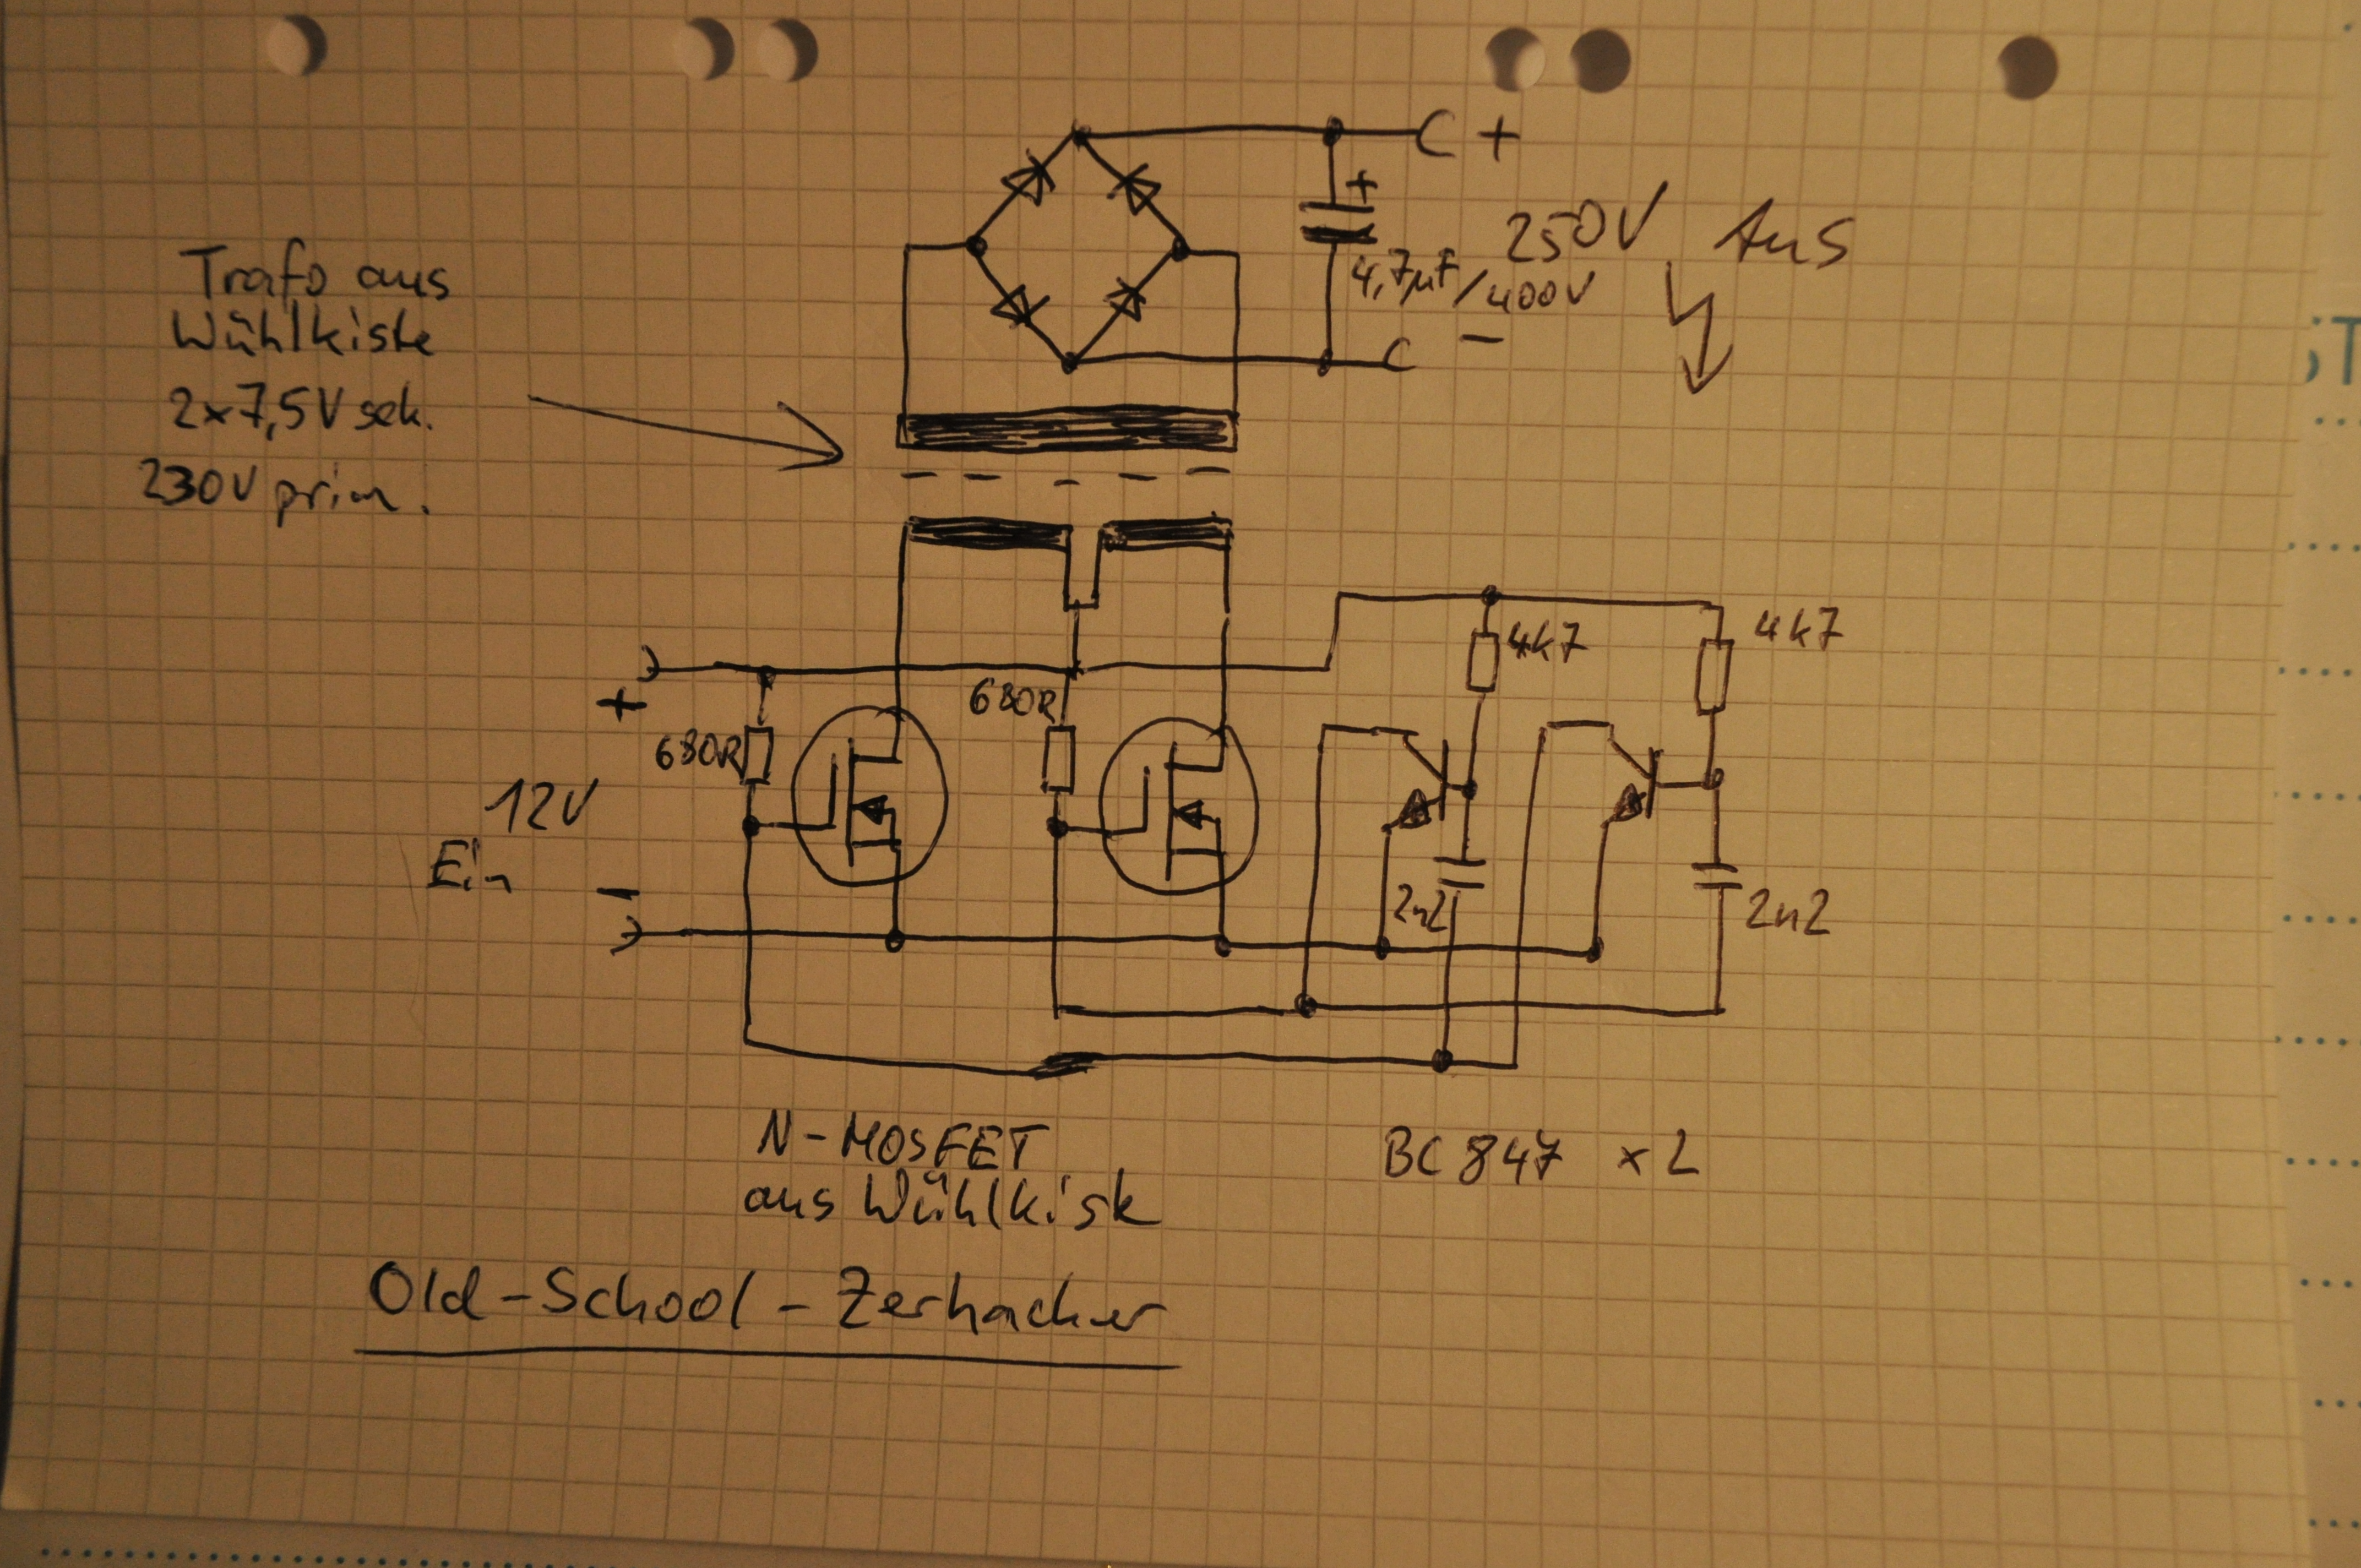 C +
+
250V Aus
4,7µF/400V
C -
Trafo aus
Wühlkiste
2x7,5V sek.
230V prim.
4k7
4k7
+
680R
680R
12V
Ein
-
2n2
2n2
N-MOSFET
aus Wühlkiste
BC847 x2
Old-School-Zerhacker